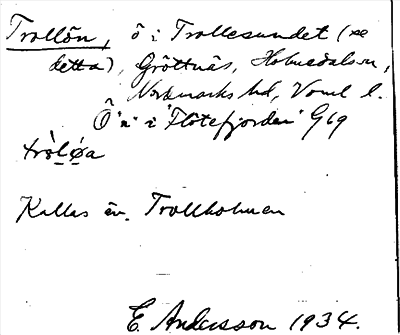 Trollön, ö i Trollesundet (se
detta), Gröttnäs, Holmedals sn,
Nordmarks hd, Vrml l.
Ö "n" i "Flötefjorden" G69
tròl̥ø̥a
Kallas äv. Trollholmen
E. Andersson 1934.